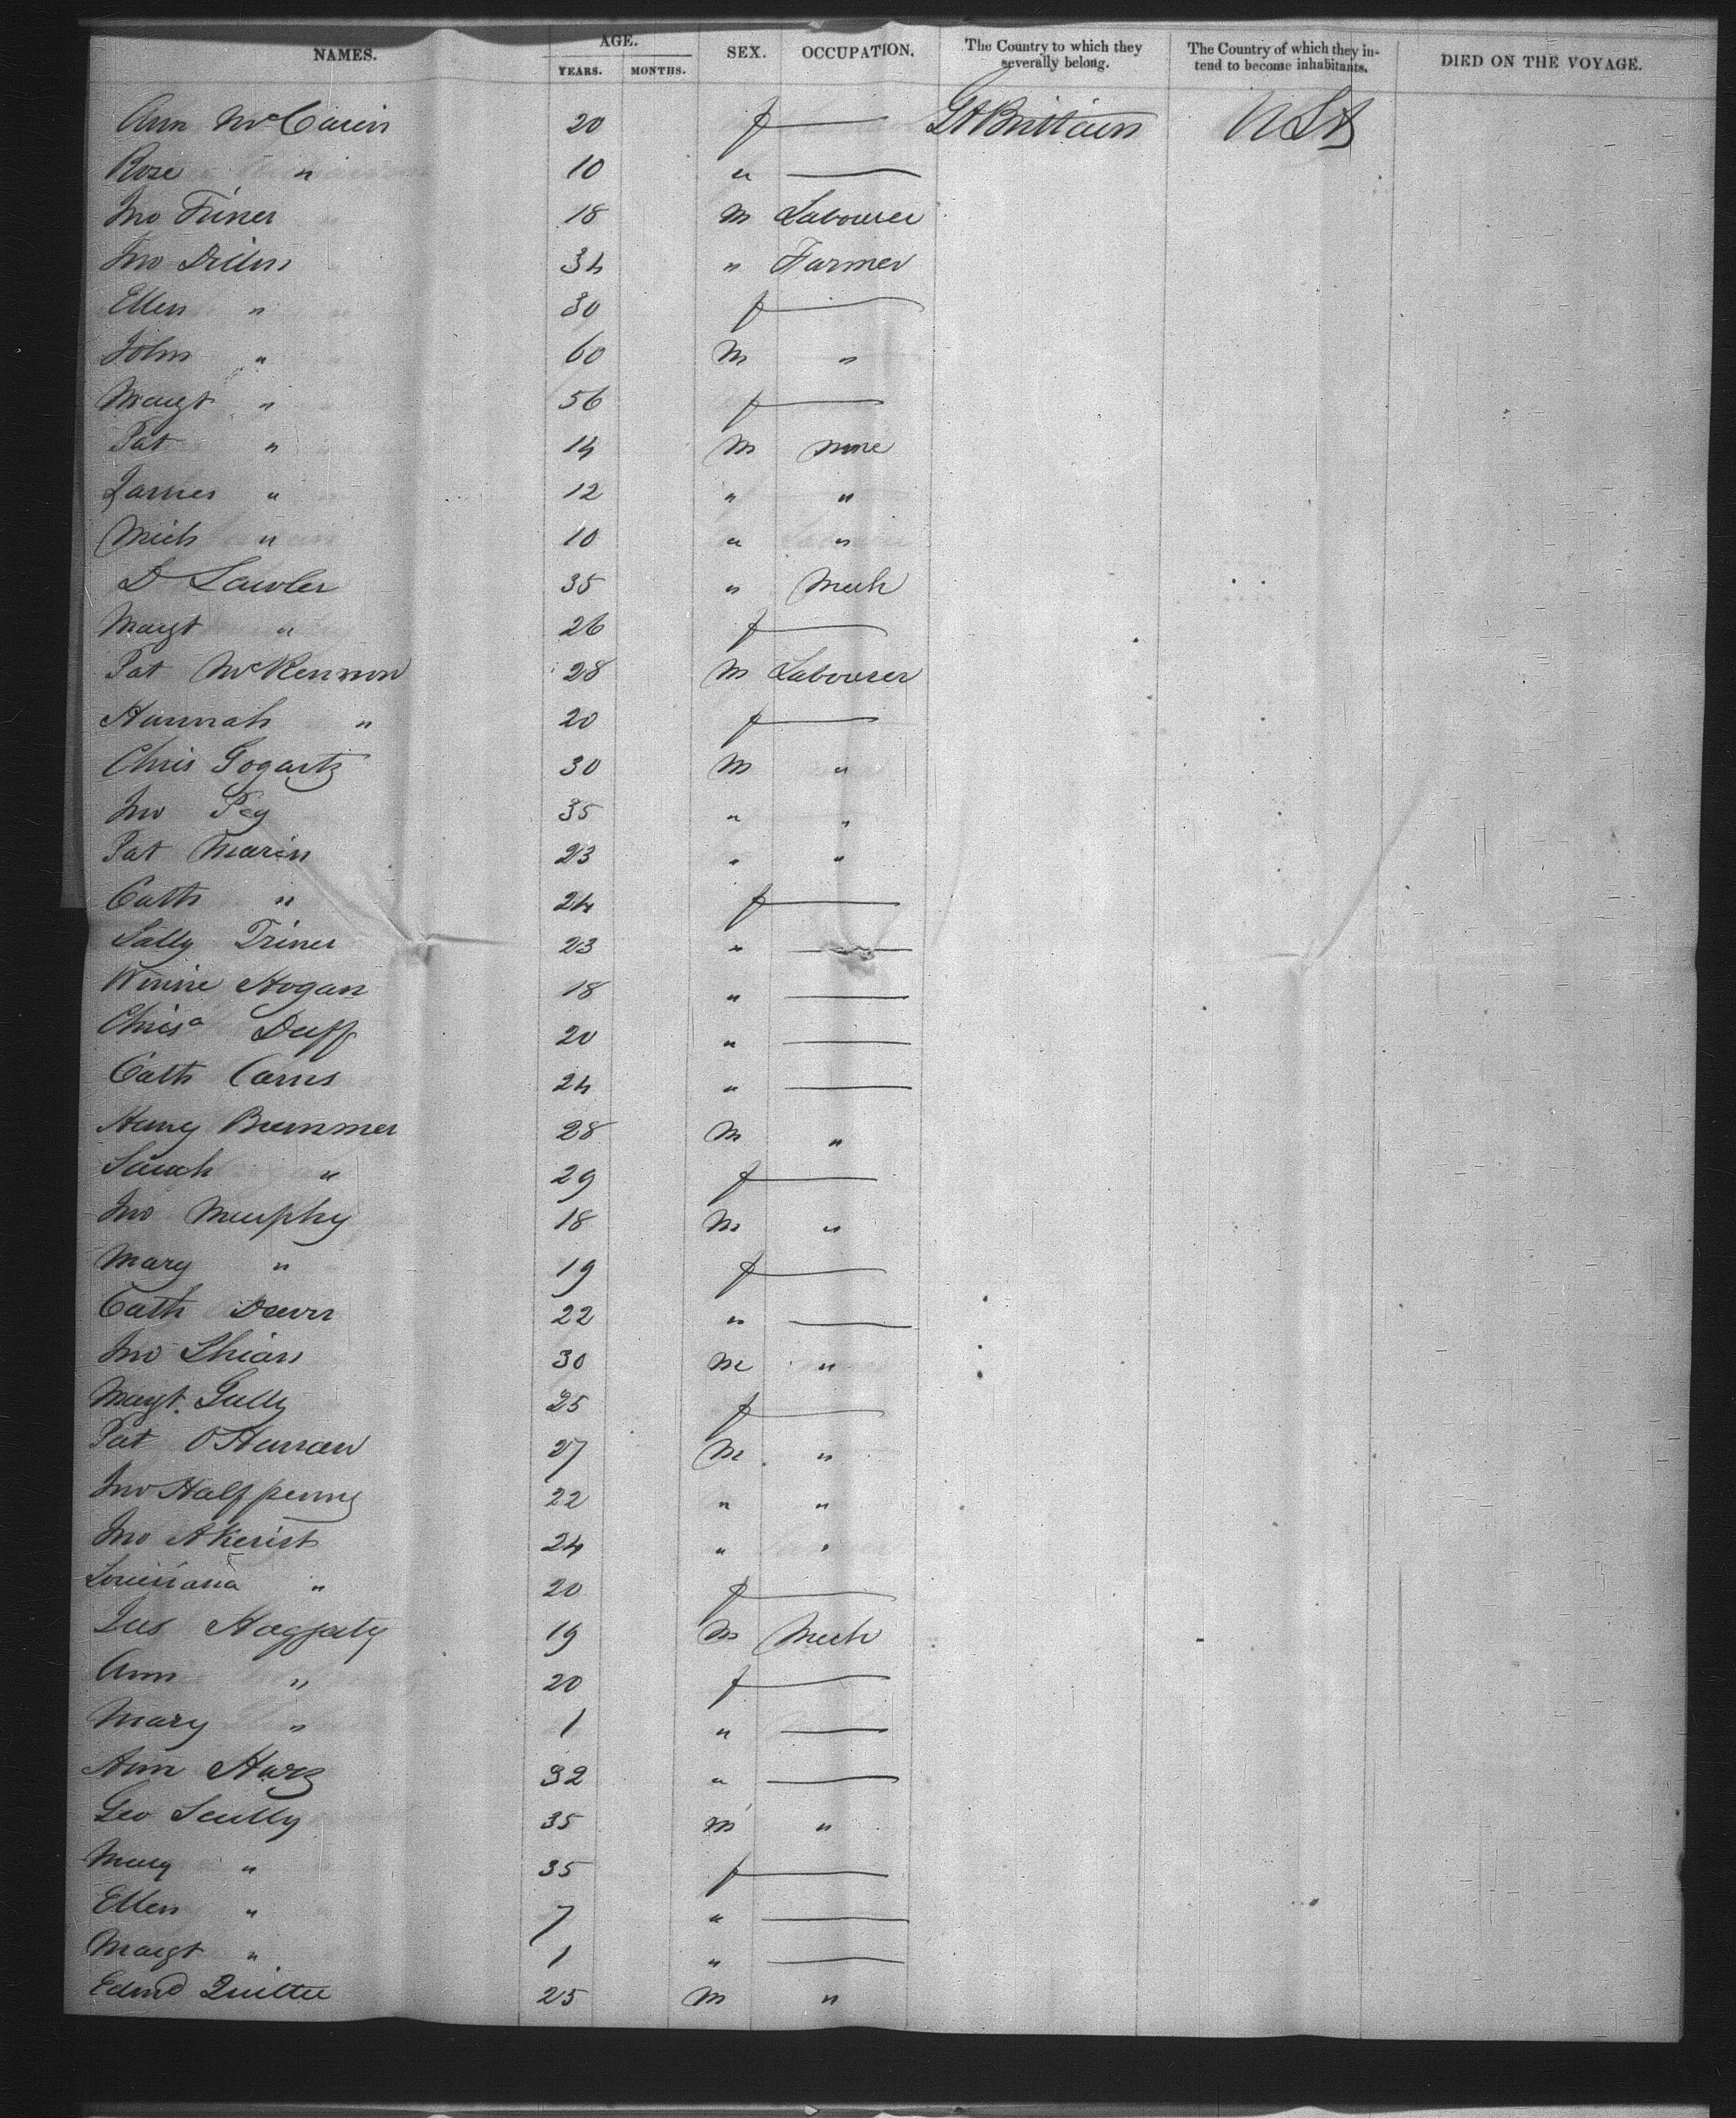 NAMES. AGE. YEARS. MONTHS. SEX. OCCUPATION. The Country to which they severally belong. The Country of which they intend to become inhabitants. DIED ON THE VOYAGE.
Ann McCaren 20 f — Gt Brittain U S A
Rose " 10 " —
Jno Triner 18 m Labourer
Jno Dillon 34 " Farmer
Ellen " 30 f —
John " 60 m "
Margt " 56 f —
Pat " 14 m none
James " 12 " "
Mich " 10 " "
D Lawler 35 " Mech
Margt " 26 f —
Pat McKennon 28 m Labourer
Hannah " 20 f —
Chris Gogarty 30 m "
Jno Peg 35 " "
Pat Marin 23 " "
Cath " 24 f —
Sally Triner 23 " —
Winnie Hogan 18 " —
Chrisa Duff 20 " —
Cath Carns 24 " —
Henry Brummer 28 m "
Sarah " 29 f —
Jno Murphy 18 m "
Mary " 19 f —
Cath Down 22 " —
Jno Shian 30 m "
Margt. Gully 25 f —
Pat O'Harran 27 m "
Jno Halfpenny 22 " "
Jno Akerist 24 " "
Louisiana " 20 f —
Jas Haggaty 19 m Mech
Ann " 20 f —
Mary " 1 " —
Ann Harz 32 " —
Geo Scully 35 m "
Mary " 35 f —
Ellen " 7 " —
Margt " 1 " —
Edmd Quilter 25 m "